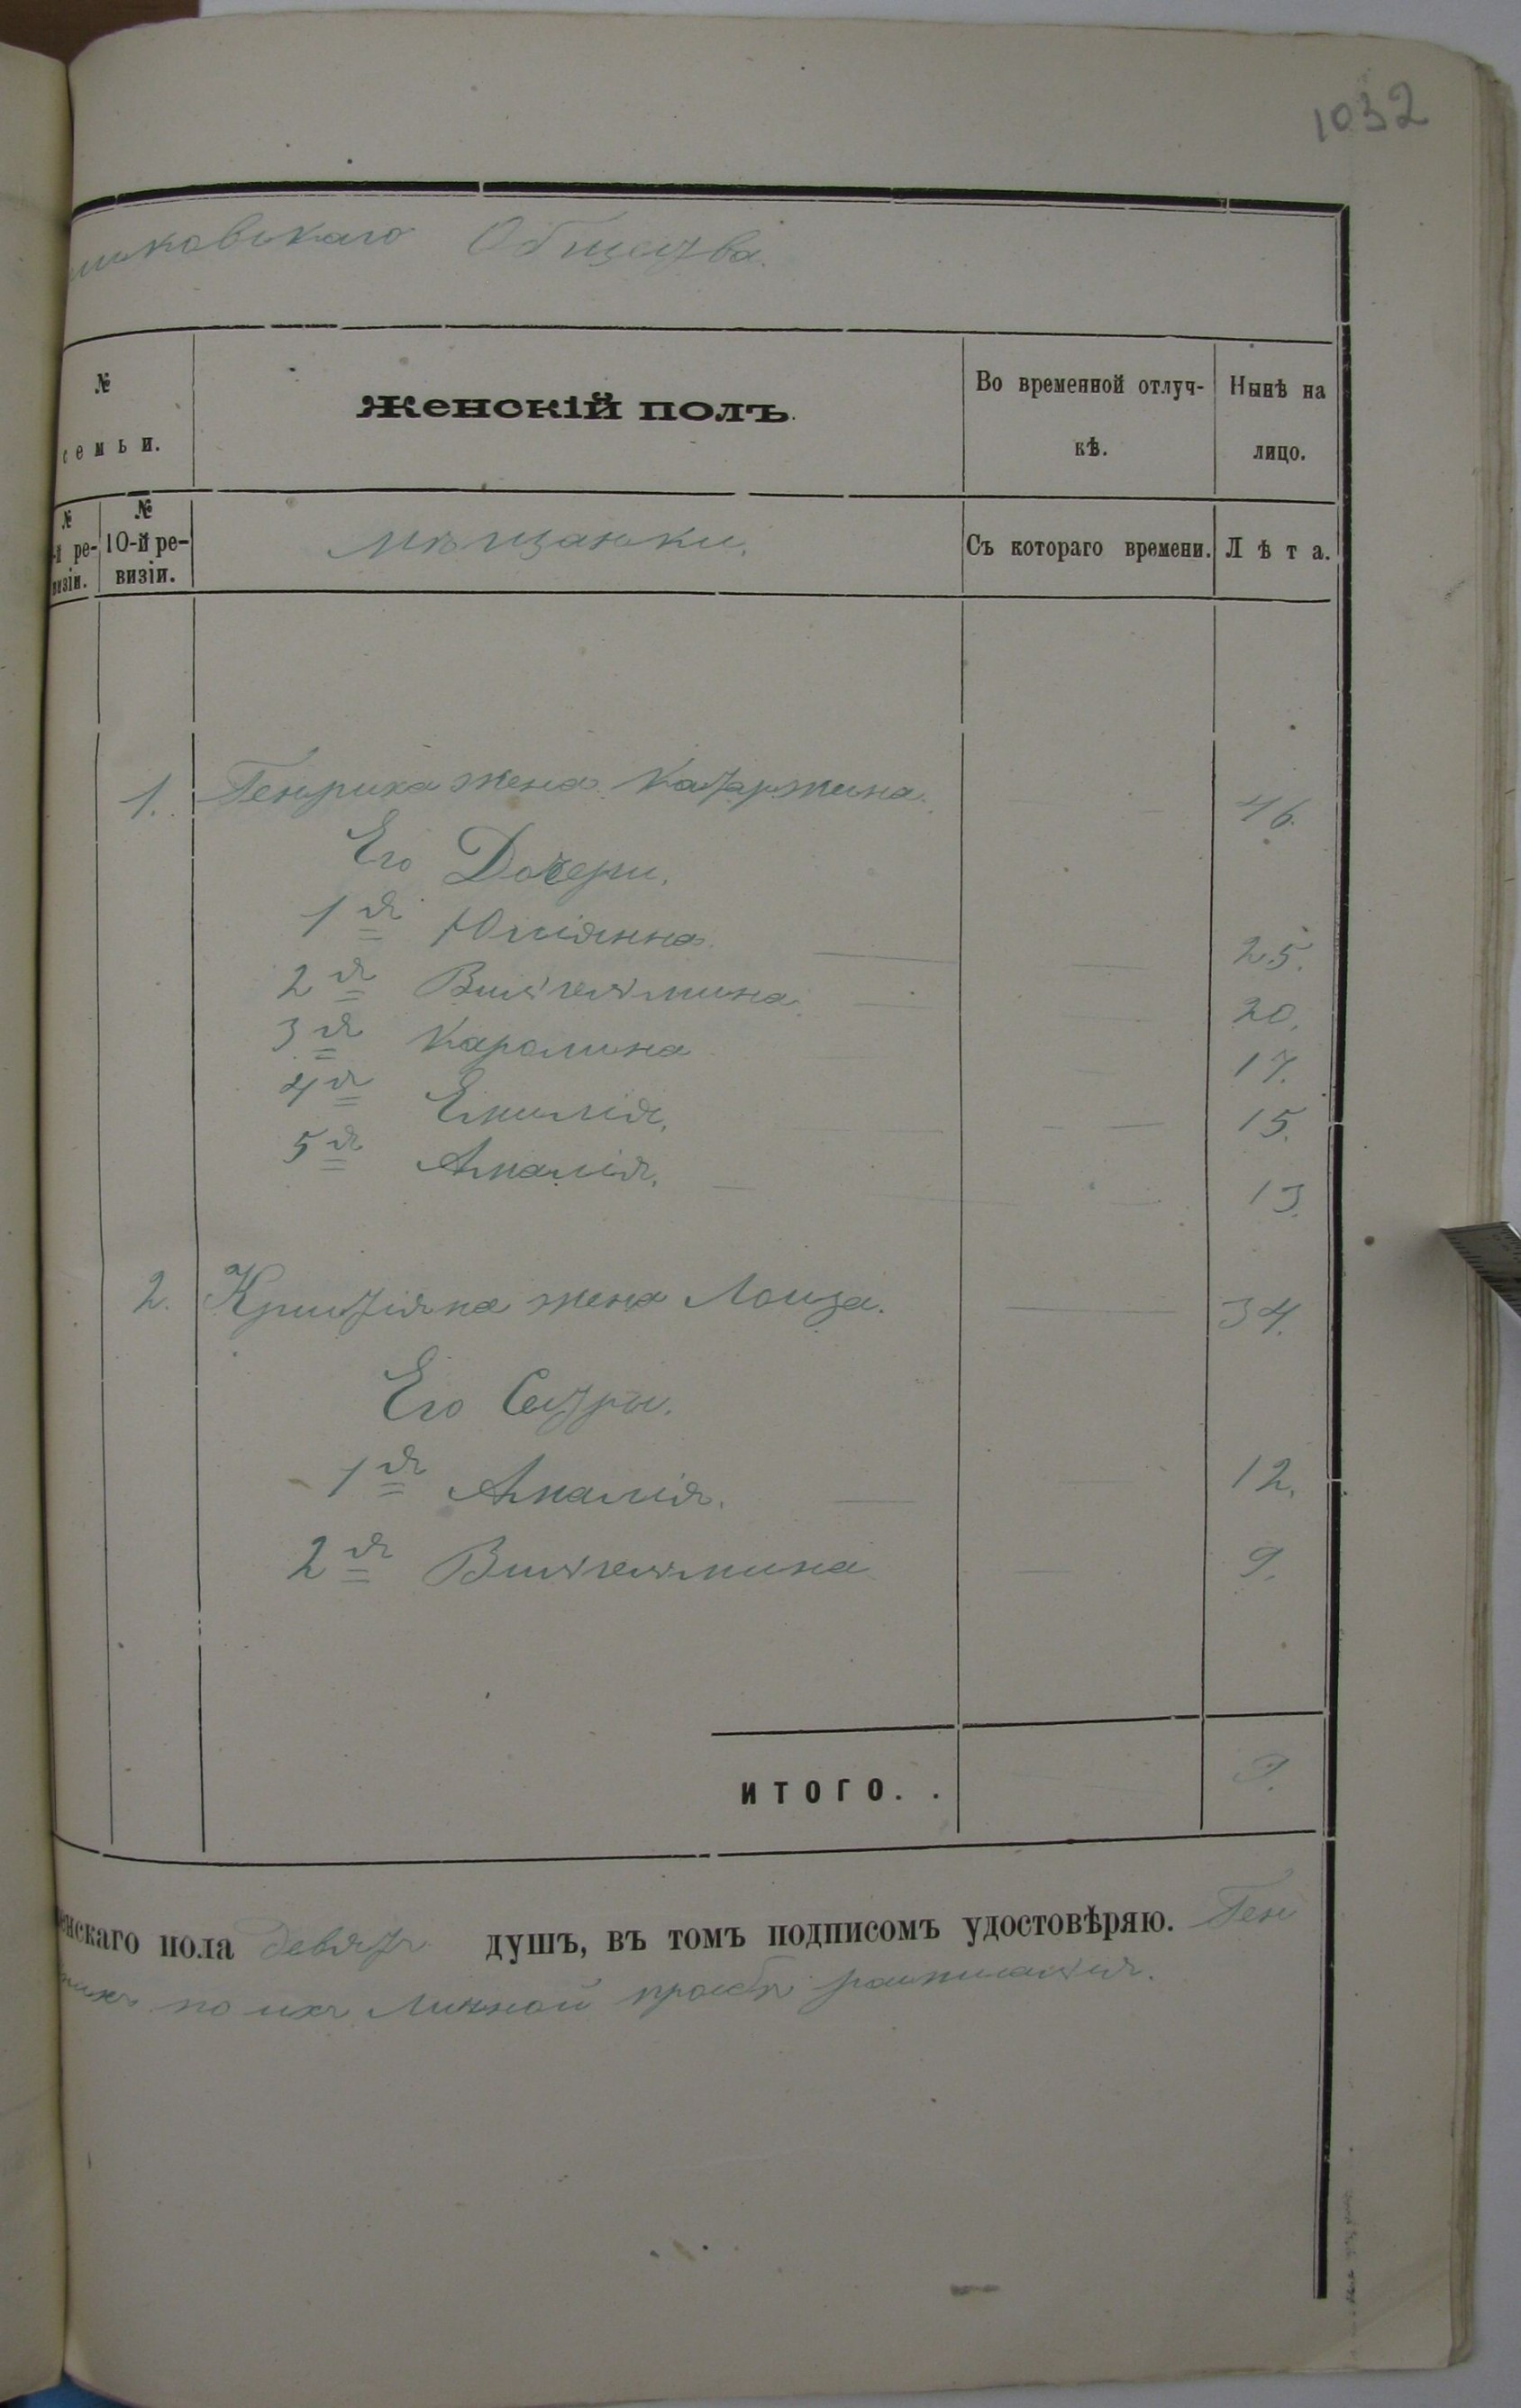 1032
Общества.
№
семьи.
Женскій полъ.
Во временной отлуч-
кѣ.
Нынѣ на
лицо.
№
-й ре-
визіи.
№
10-й ре-
визіи.
Мѣщанки.
Съ котораго времени.
Лѣта.
1. Генриха жена Катаржина. 46.
Его Дочери.
1я Юліянна 25.
2я Вильгельмина 20.
3я Каролина 17.
4я Емилія. 15.
5я Амалія. 13.
2. Криштіяна жена Лоиза. 34.
Его Сестры.
1я Амалія. 12.
2я Вильгельмина 9.
ИТОГО. . 9.
енскаго пола девять душъ, въ томъ подписомъ удостовѣряю. Ген
по ихъ личной просбѣ